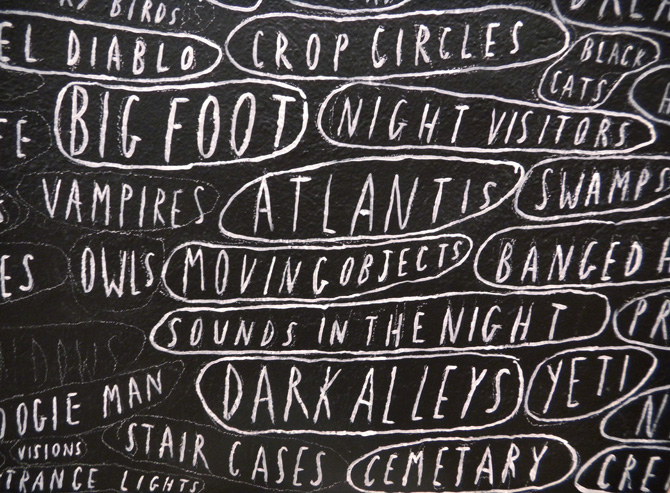 BIRDS
EL DIABLO CROP CIRCLES BLACK CATS
BIG FOOT NIGHT VISITORS
VAMPIRES ATLANTIS SWAMPS
OWLS MOVING OBJECTS BANGED
SOUNDS IN THE NIGHT
OOGIE MAN DARK ALLEYS YETI
VISIONS STAIR CASES CEMETARY CRE
TRANCE LIGHTS